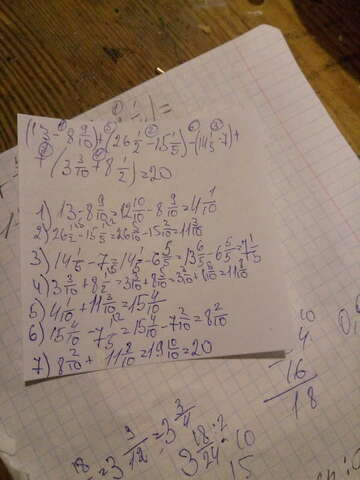 (13-8 9/10)+(26 1/2-15 1/5)-(14 1/5-7)+
+(3 3/10+8 1/2)=20
1) 13-8 9/10=12 10/10-8 9/10=4 1/10
2) 26 1/2-15 1/5=26 5/10-15 2/10=11 3/10
3) 14 1/5-7=14 1/5-6 5/5=13 6/5-6 5/5=7 1/5
4) 3 3/10+8 1/2=3 3/10+8 5/10=11 8/10
5) 4 1/10+11 3/10=15 4/10
6) 15 4/10-7 1/5=15 4/10-7 2/10=8 2/10
7) 8 2/10+11 8/10=19 10/10=20
10
4
16
18
0,
=3 3/12=3 3/4
3 18·2/24
10
15